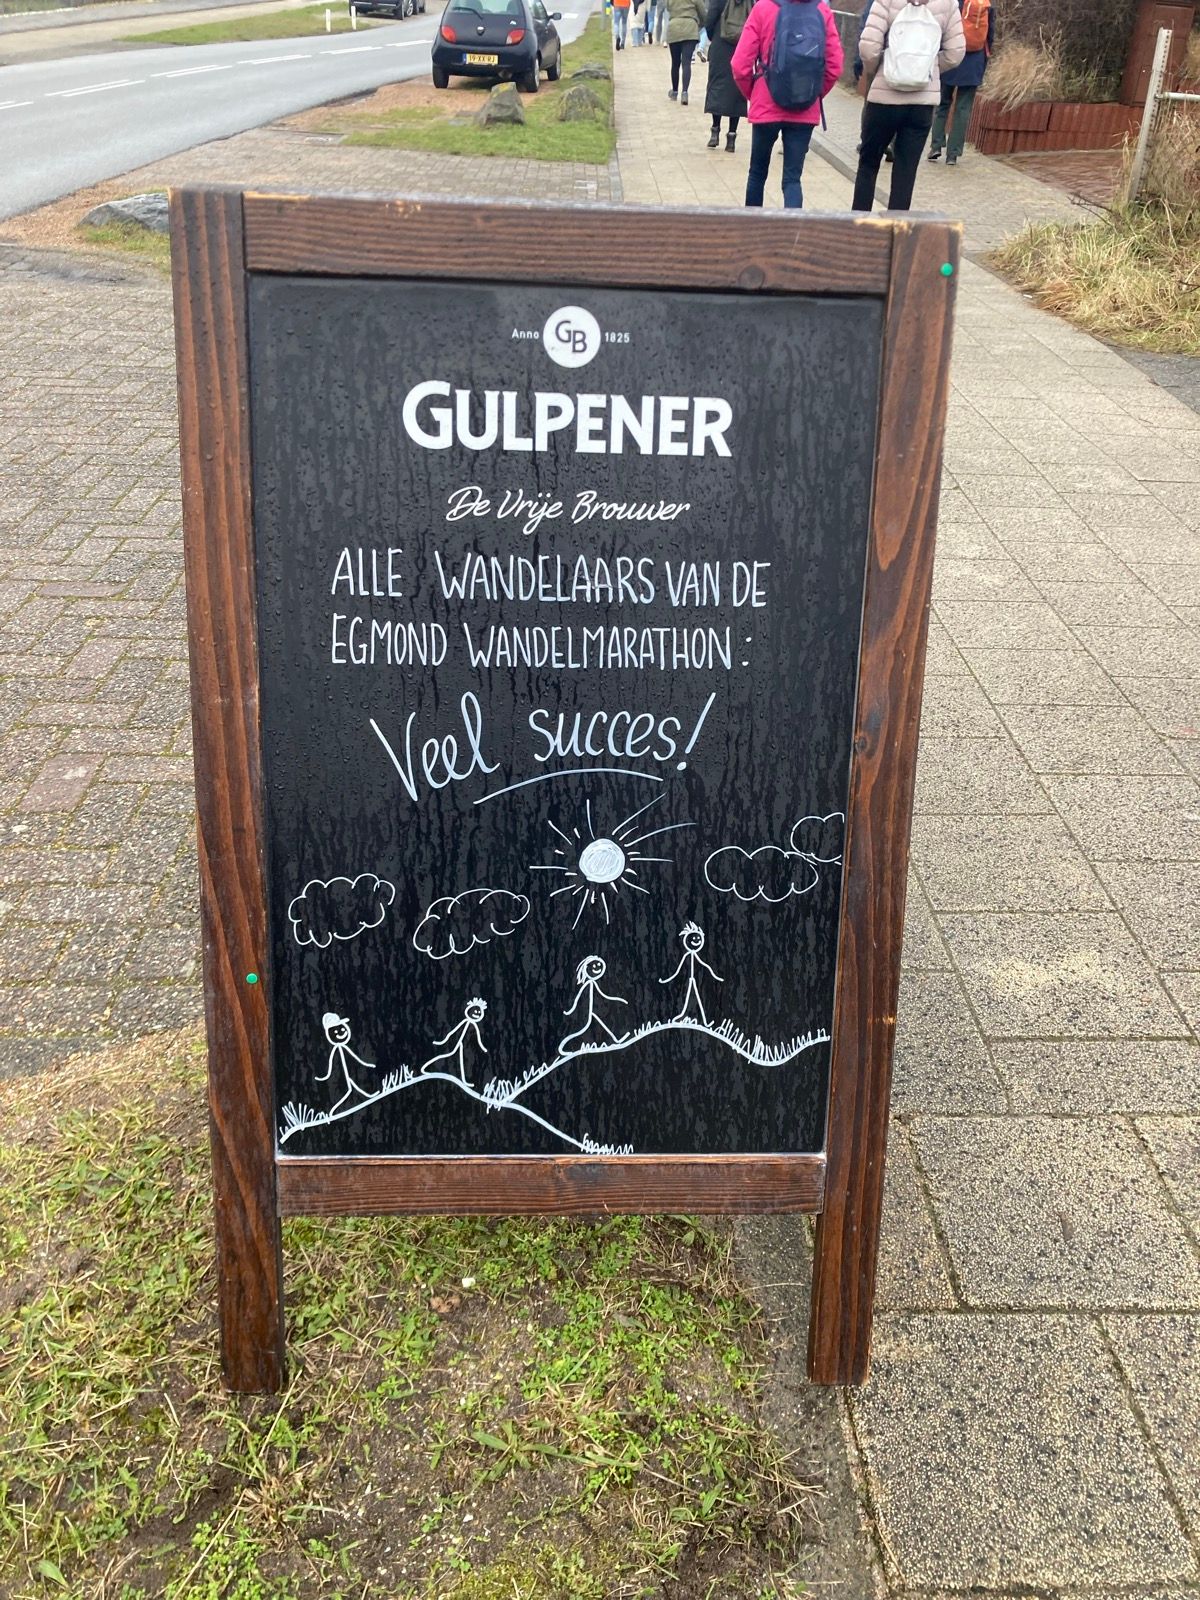 Anno GB 1825
GULPENER
De Vrije Brouwer
ALLE WANDELAARS VAN DE
EGMOND WANDELMARATHON:
Veel succes!
19-XX-RJ